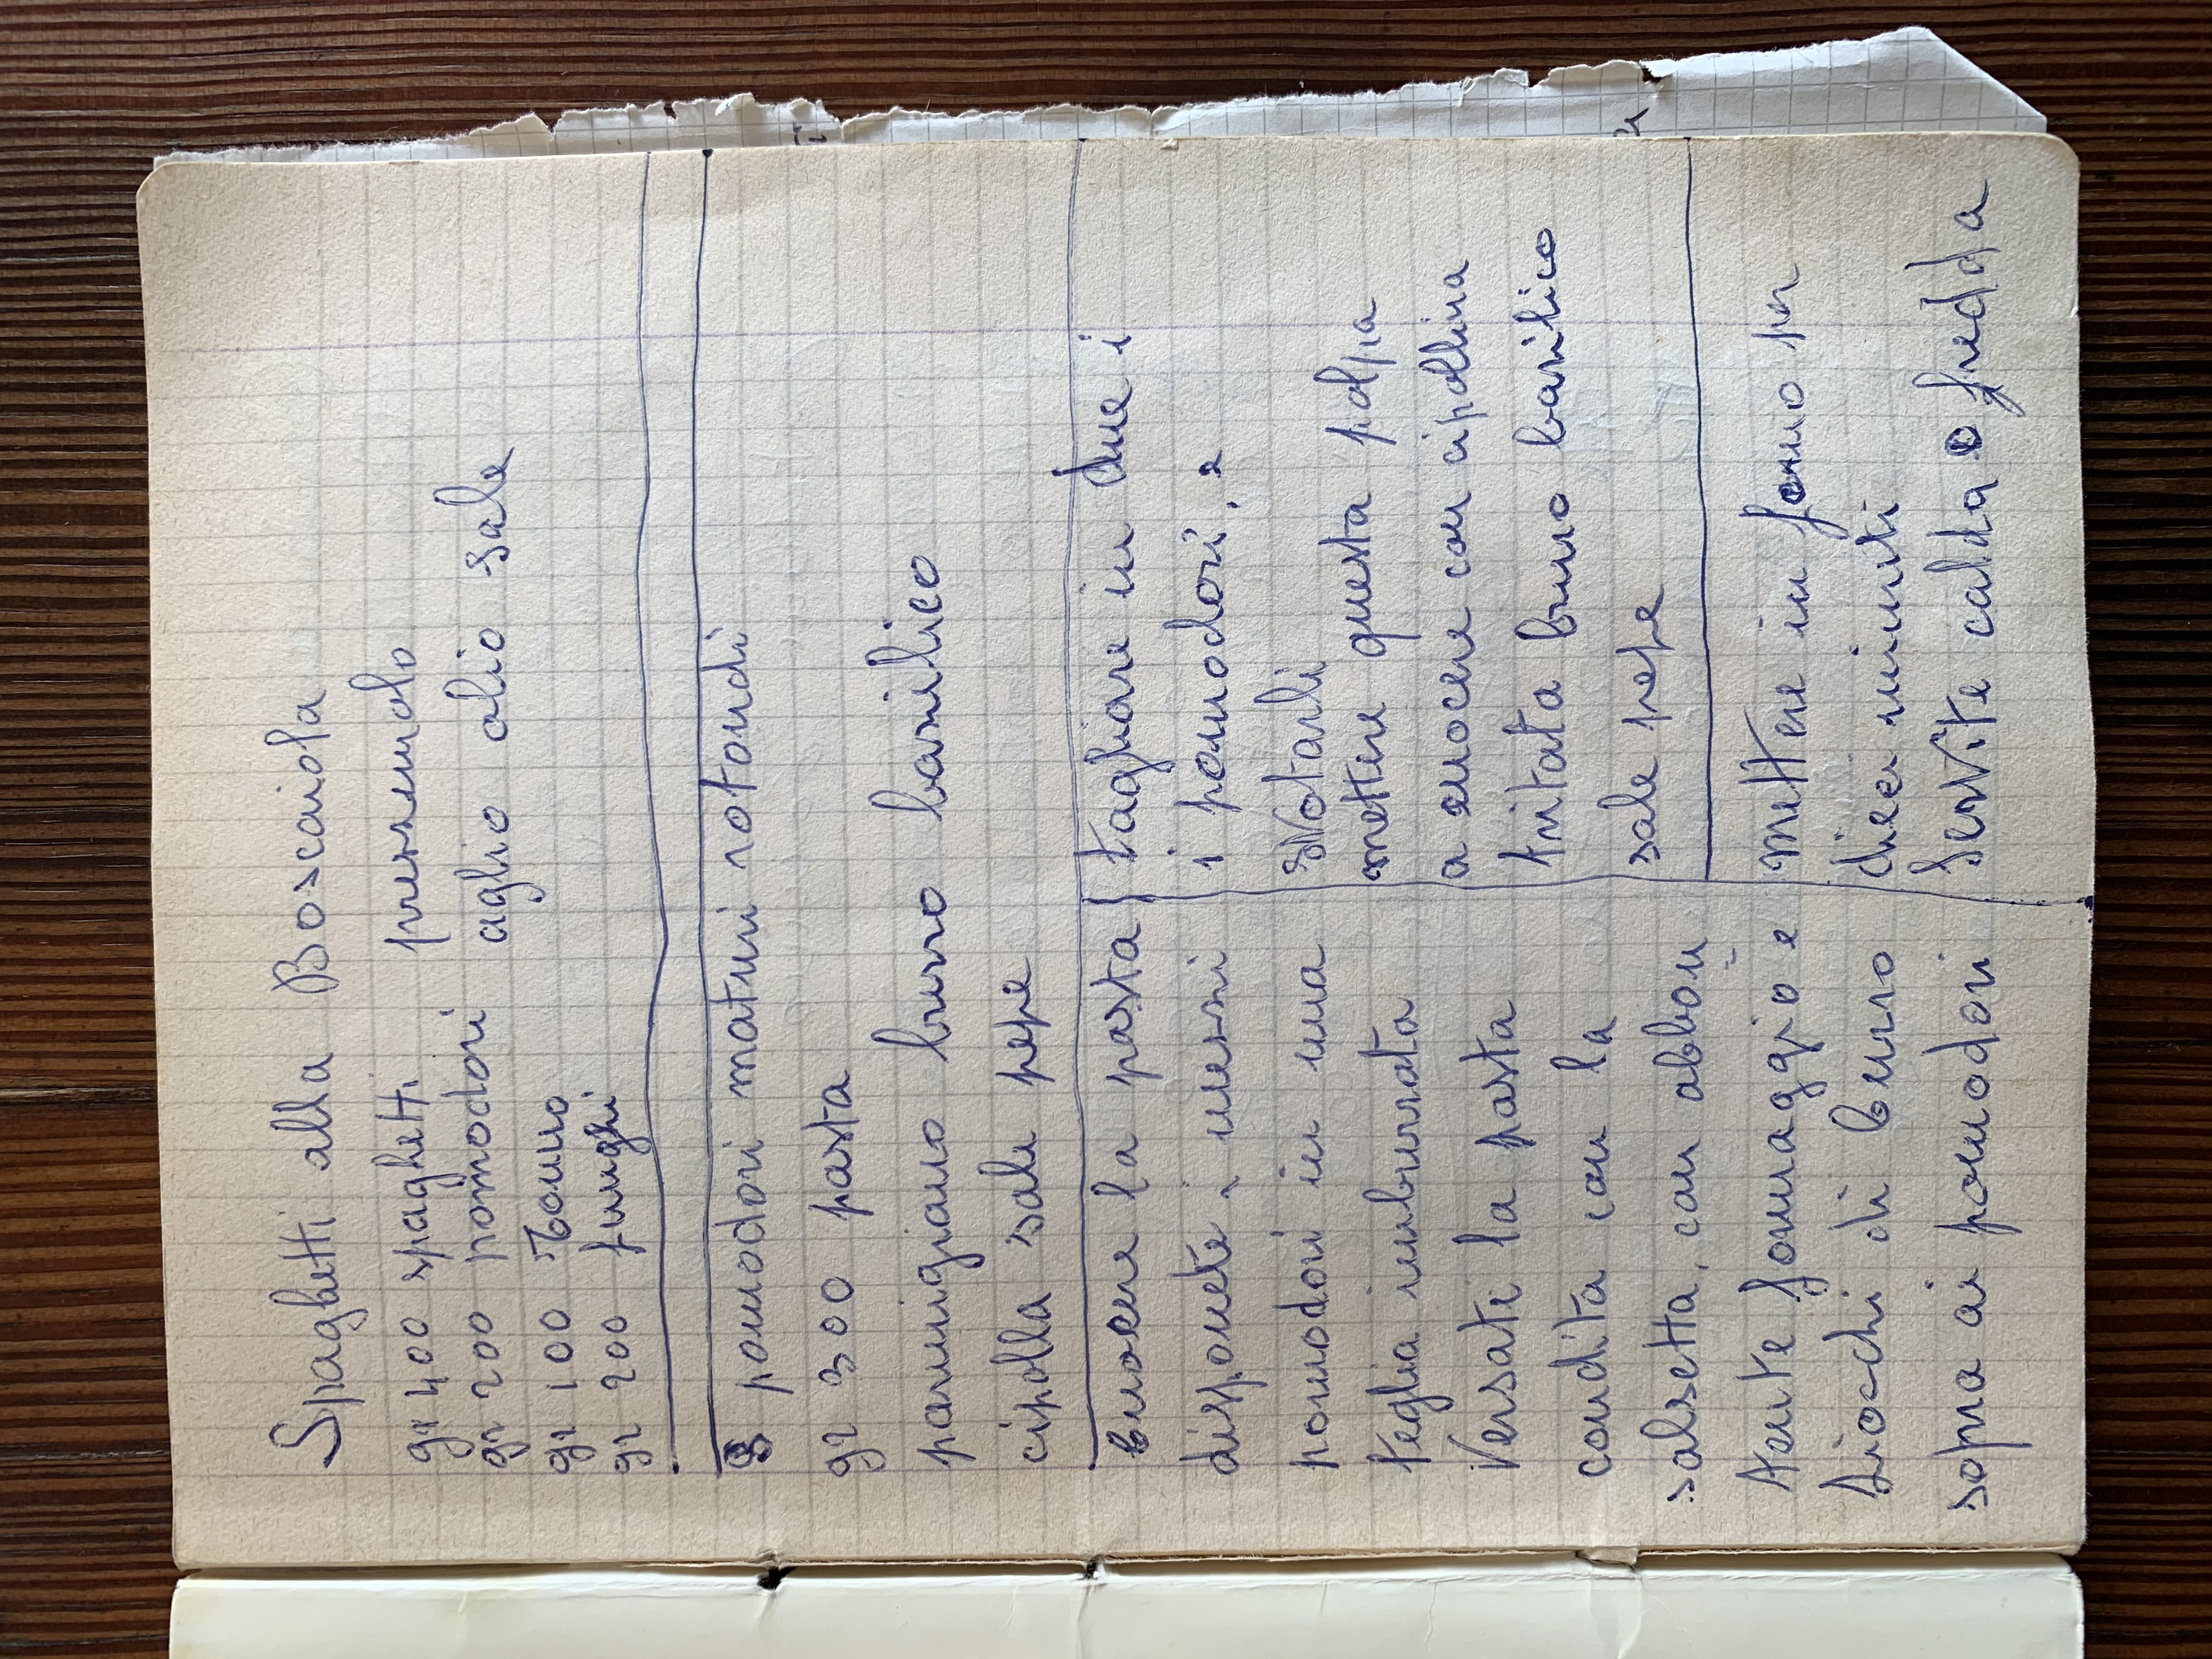 Spaghetti alla Boscaiola
gr 400 spaghetti
gr 200 pomodori
gr 100 Tonno
gr 200 funghi
prezzemolo
aglio olio sale
pomodori maturi rotondi
gr 300 pasta
parmigiano burro basilico
cipolla sale pepe
cuocere la pasta
disponete i mezzi
pomodori in una
teglia imburrata
Versate la pasta
condita con la
salsetta, con abbon
tante formaggio e
fiocchi di burro
sopra ai pomodori
tagliare in due i
i pomodori, e
sVotarli
mettere questa polpa
a cuocere con cipollina
tritata burro basilico
sale pepe
Mettere in forno per
dieci minuti
Servite calda o fredda